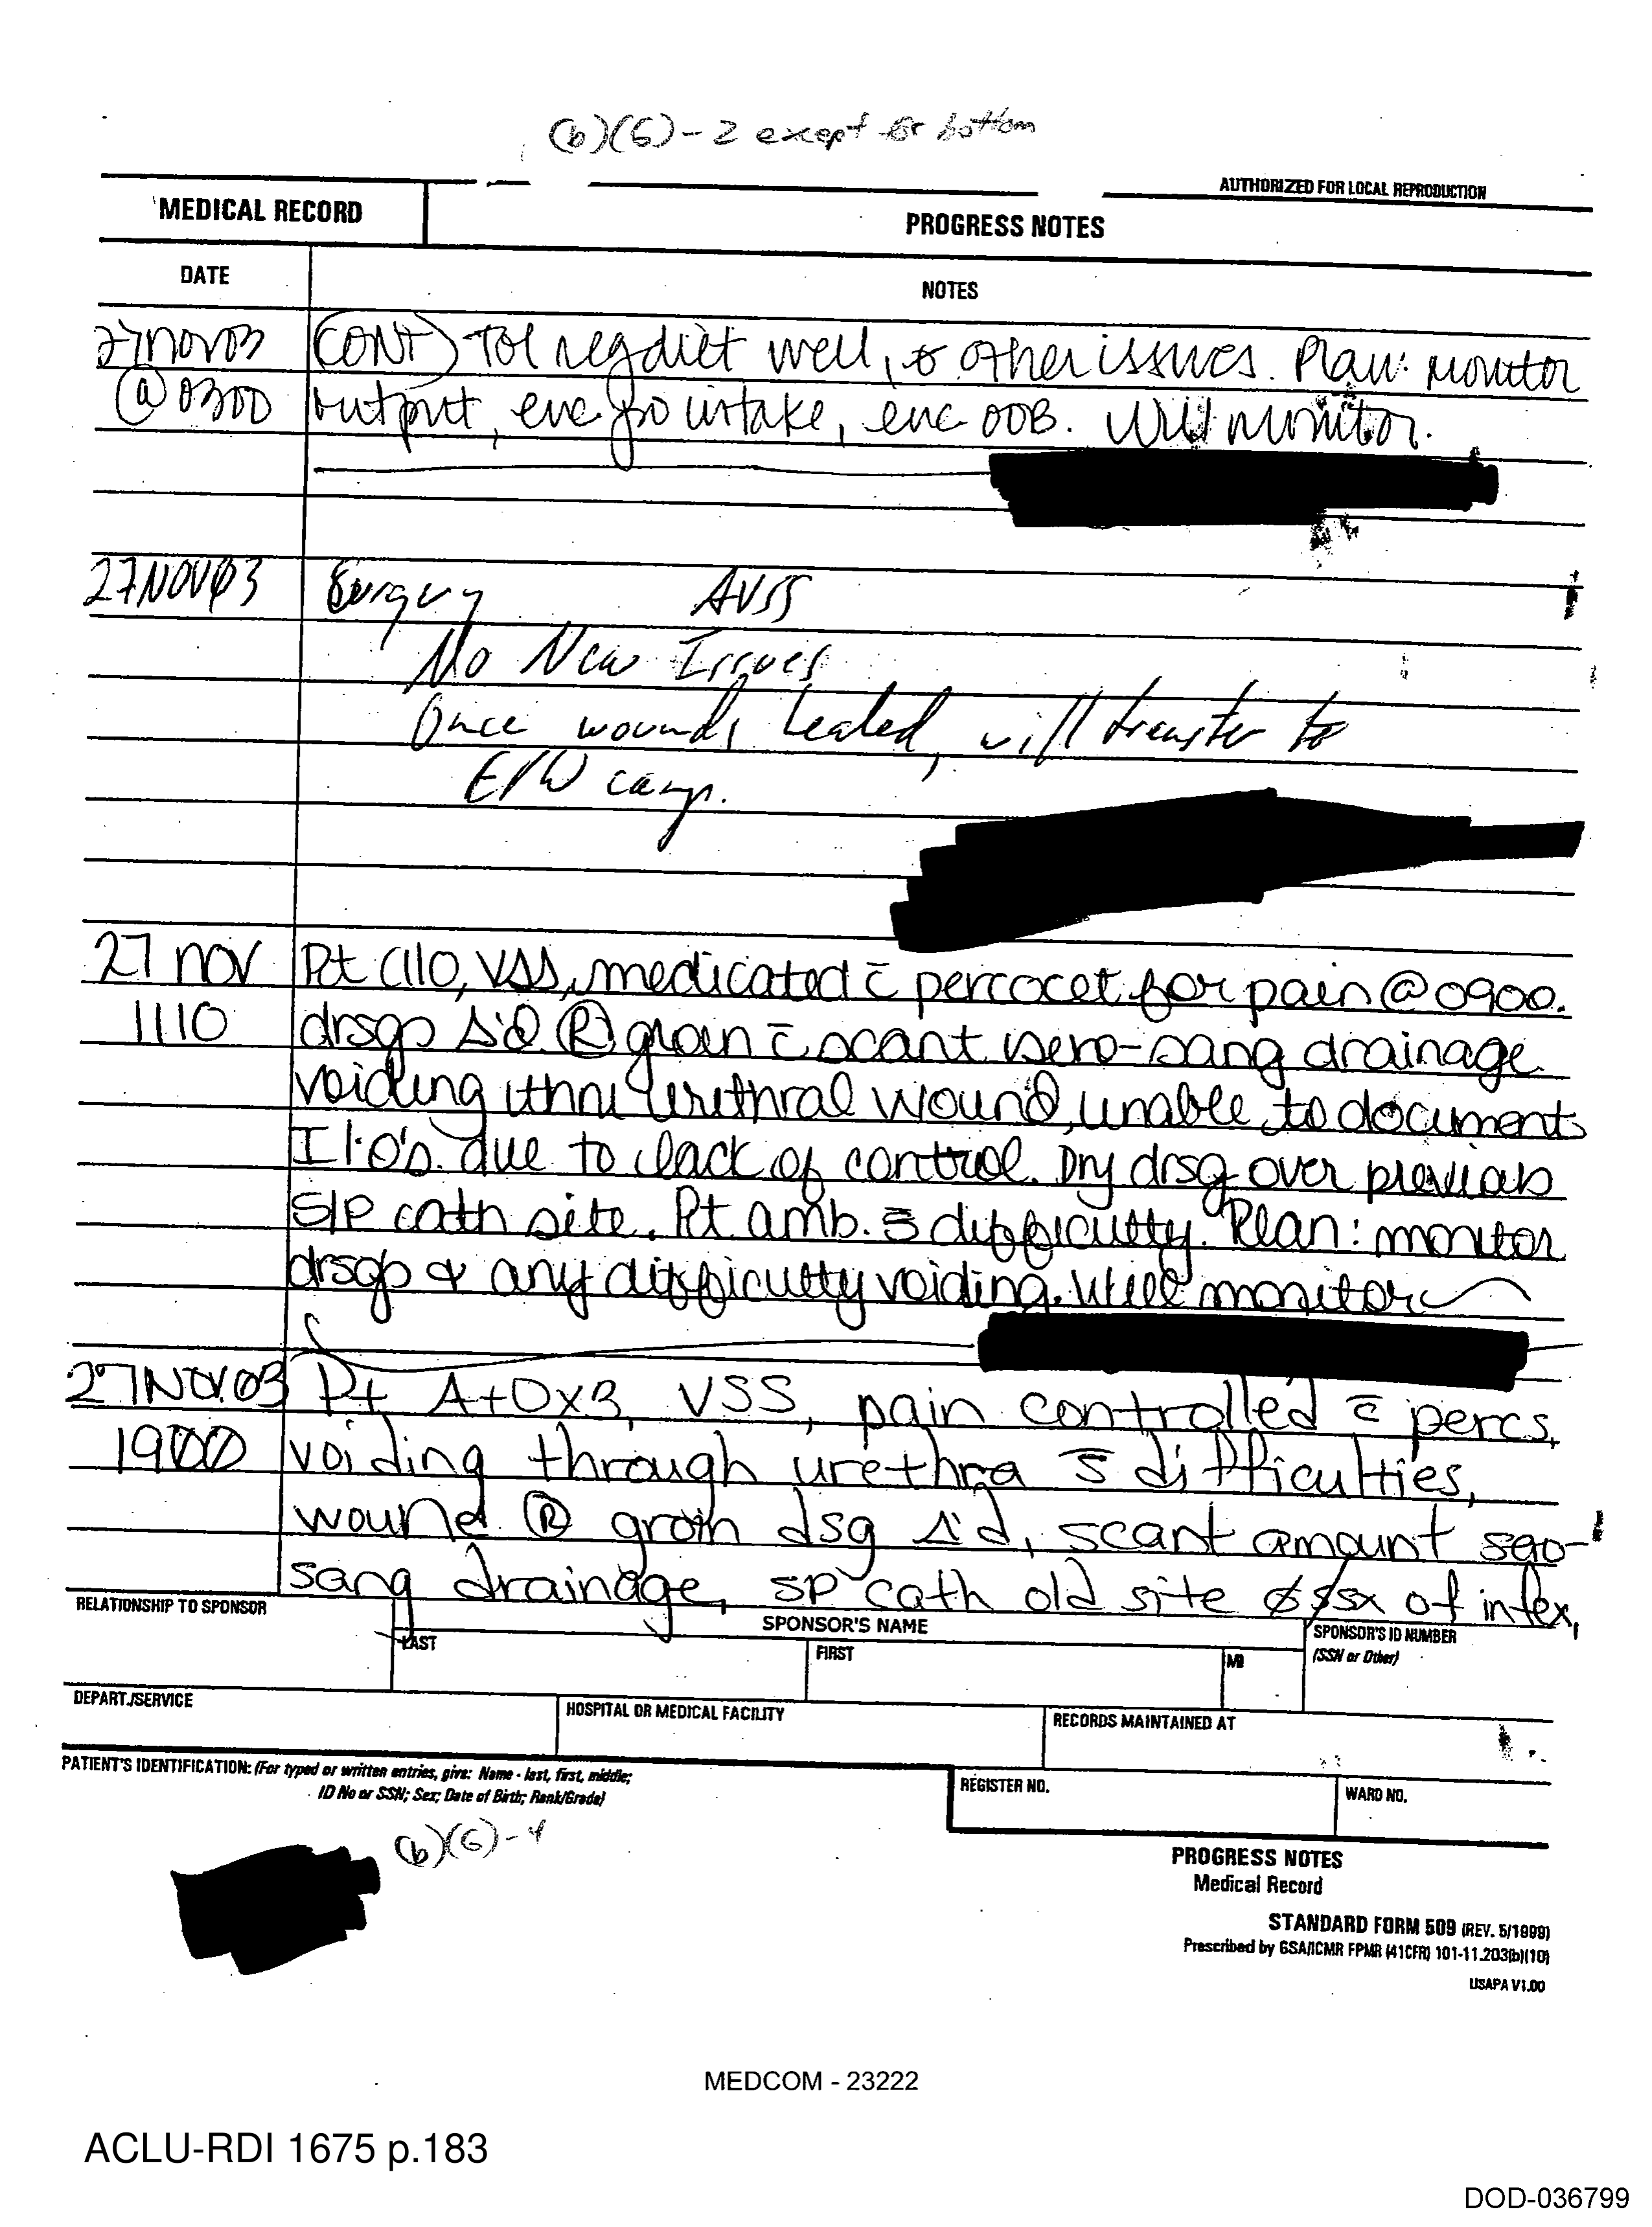 (b)(6)-2 except for bottom
AUTHORIZED FOR LOCAL REPRODUCTION
MEDICAL RECORD
PROGRESS NOTES
DATE
NOTES
27NOV03 (CONT) Tol reg diet well, ø other issues. Plan: monitor
@ 0300 output, enc po intake, enc OOB. Will monitor.
27NOV03 Surgery AVSS
No New Issues
Once wounds healed, will transfer to
EPW camp.
27 nov Pt C/O, VSS, medicated c̄ percocet for pain @ 0900.
1110 drsgs Δ'd Ⓡ groin c̄ scant sero-sang drainage
voiding thru urethral wound, unable to document
I+O's due to lack of control. Dry drsg over previous
S/P cath site. Pt amb. s̄ difficulty. Plan: monitor
drsgs & any difficulty voiding. Will monitor
27NOV03 Pt A+Ox3, VSS, pain controlled c̄ percs,
1900 voiding through urethra s̄ difficulties,
wound Ⓡ groin dsg Δ'd, scant amount seo-
sang drainage, SP cath old site ø s/sx of infex,
RELATIONSHIP TO SPONSOR
SPONSOR'S NAME
SPONSOR'S ID NUMBER
LAST
FIRST
MI
(SSN or Other)
DEPART./SERVICE
HOSPITAL OR MEDICAL FACILITY
RECORDS MAINTAINED AT
PATIENT'S IDENTIFICATION: (For typed or written entries, give: Name - last, first, middle;
ID No or SSN; Sex; Date of Birth; Rank/Grade)
REGISTER NO.
WARD NO.
(b)(6)-4
PROGRESS NOTES
Medical Record
STANDARD FORM 509 (REV. 5/1999)
Prescribed by GSA/ICMR FPMR (41CFR) 101-11.203(b)(10)
USAPA V1.00
MEDCOM - 23222
ACLU-RDI 1675 p.183
DOD-036799